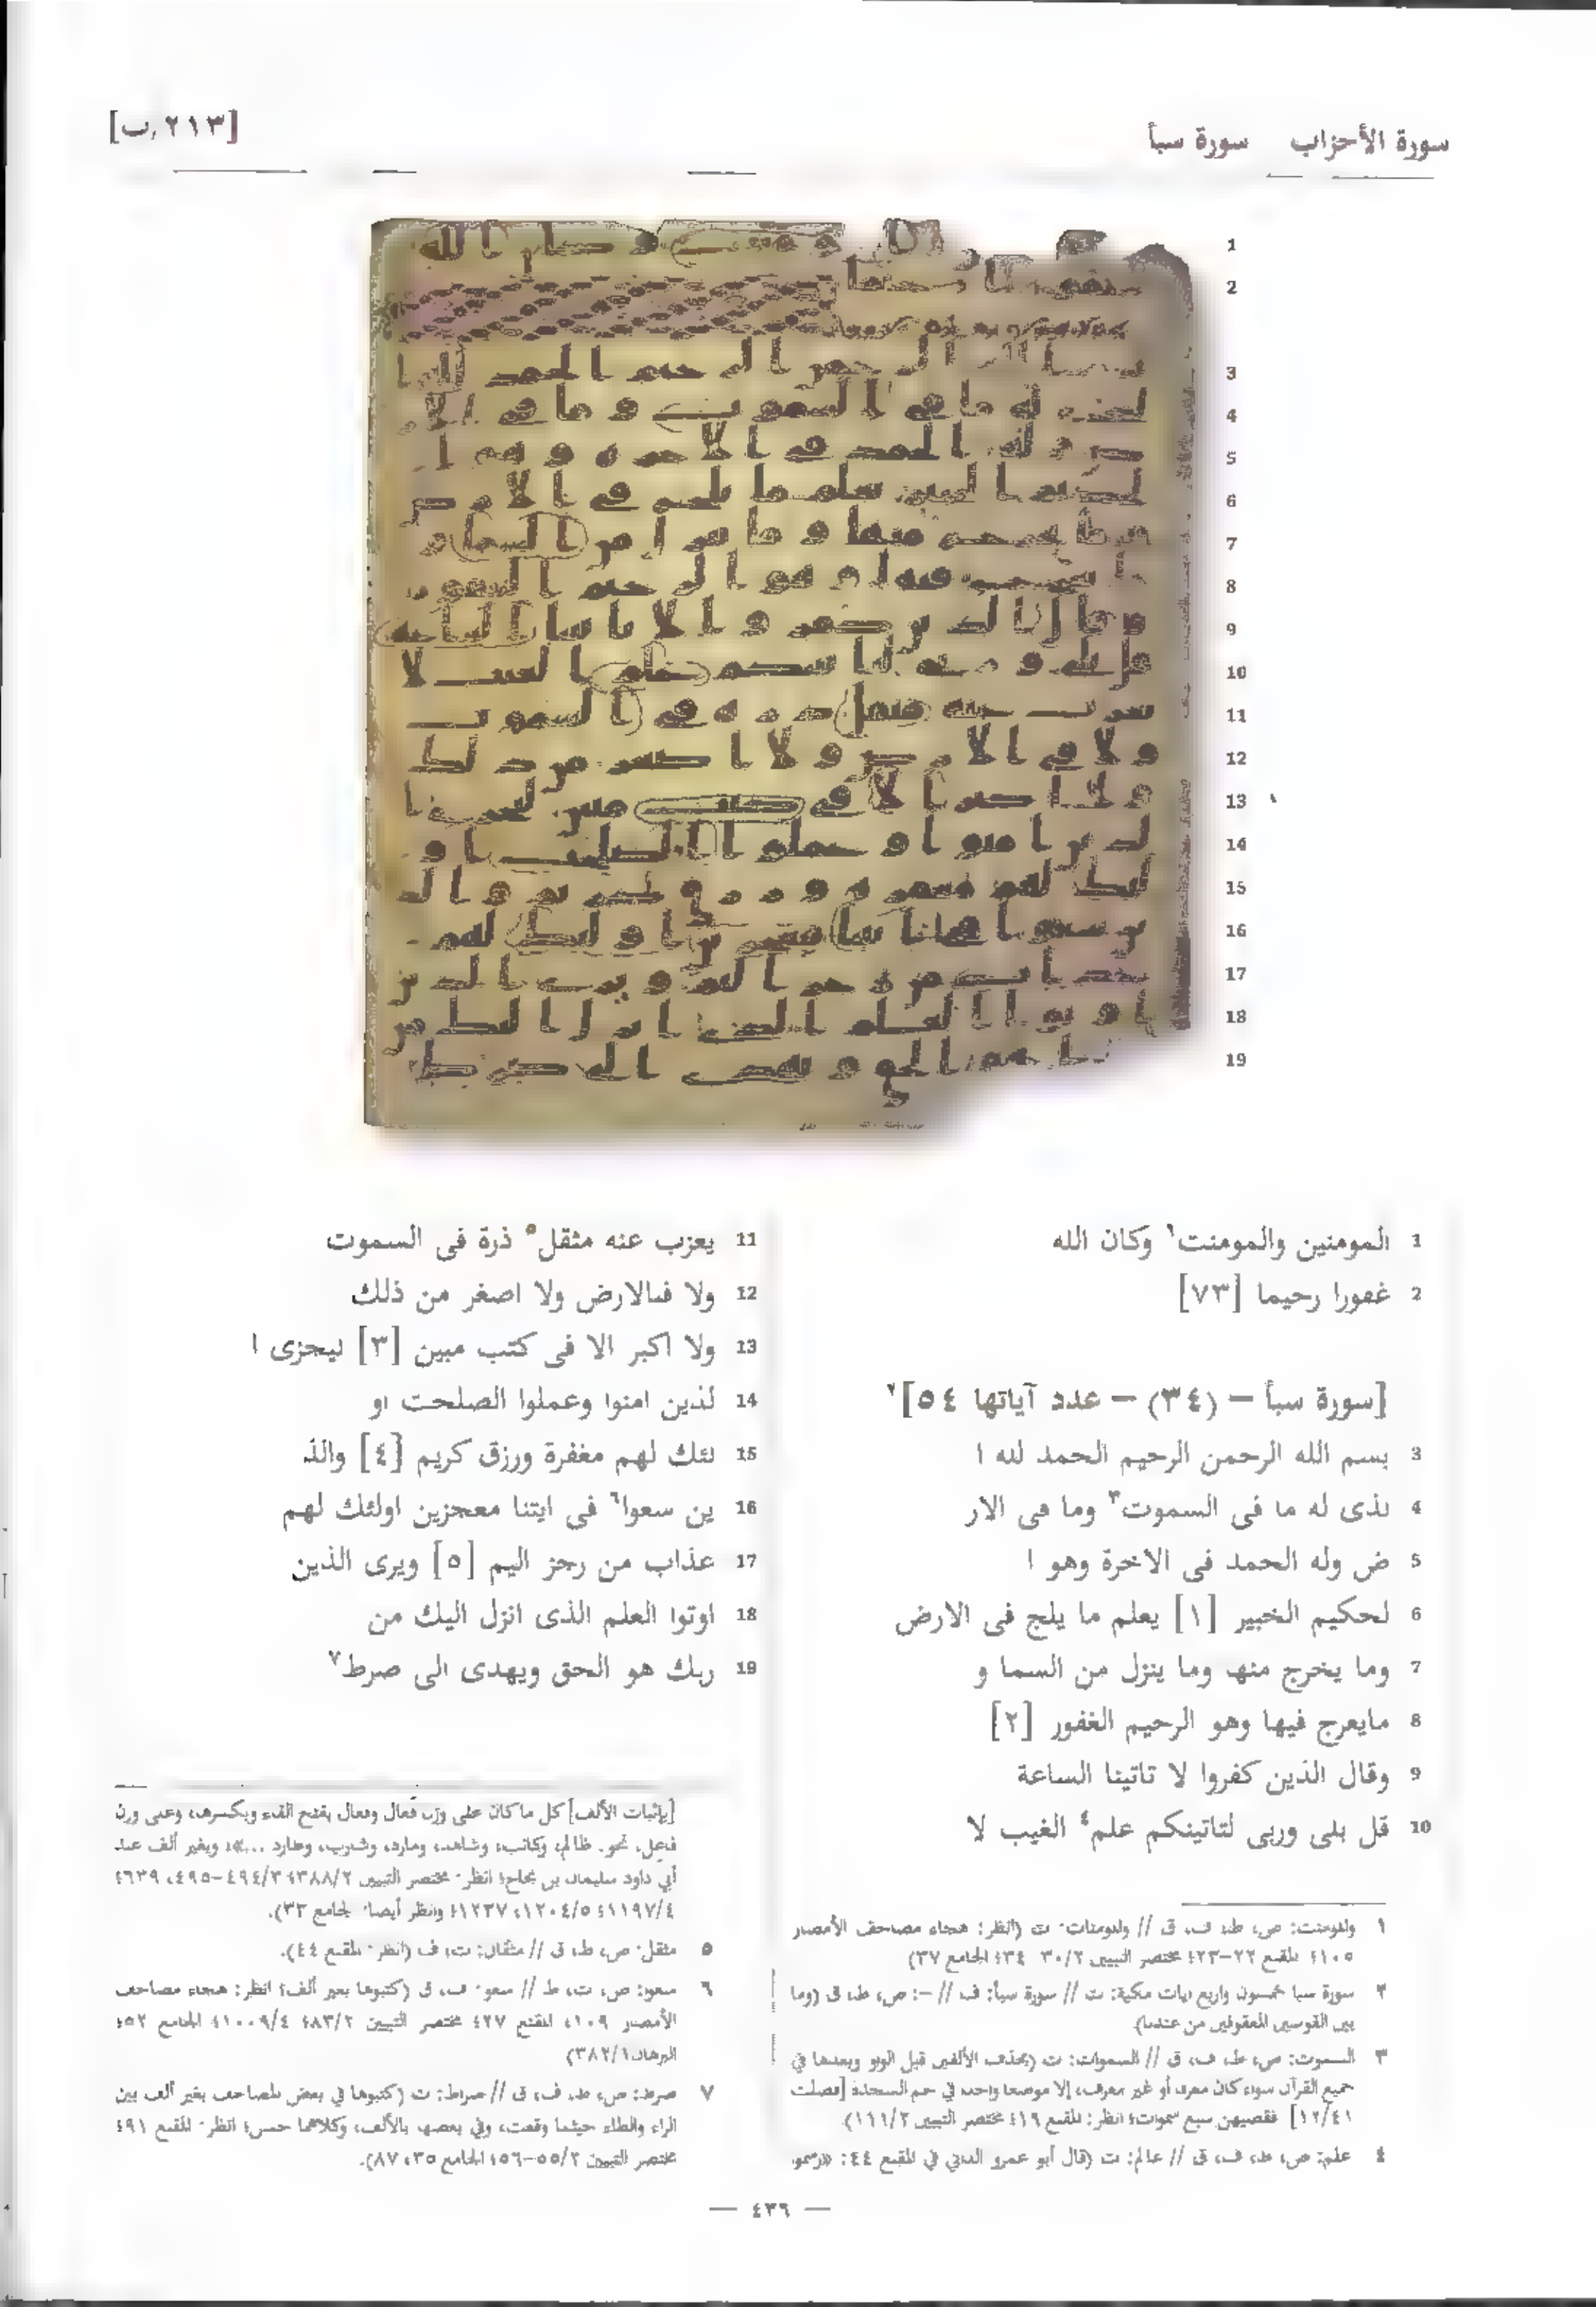 [٢١٣,ب]
سورة الأحزاب سورة سبأ
1 المومنين والمومنت١ وكان الله
2 غفورا رحيما [٧٣]
[سورة سبأ – (٣٤) – عدد آياتها ٥٤]٢
3 بسم الله الرحمن الرحيم الحمد لله ا
4 لذى له ما فى السموت٣ وما فى الار
5 ض وله الحمد فى الاخرة وهو ا
6 لحكيم الخبير [١] يعلم ما يلج فى الارض
7 وما يخرج منها وما ينزل من السما و
8 مايعرج فيها وهو الرحيم الغفور [٢]
9 وقال الذين كفروا لا تاتينا الساعة
10 قل بلى وربى لتاتينكم علم٤ الغيب لا
11 يعزب عنه مثقل٥ ذرة فى السموت
12 ولا فىالارض ولا اصغر من ذلك
13 ولا اكبر الا فى كتب مبين [٣] ليجزى ا
14 لذين امنوا وعملوا الصلحت او
15 لئك لهم مغفرة ورزق كريم [٤] والذ
16 ين سعوا٦ فى ايتنا معجزين اولئك لهم
17 عذاب من رجز اليم [٥] ويرى الذين
18 اوتوا العلم الذى انزل اليك من
19 ربك هو الحق ويهدى الى صرط٧
١ والمومنت: ص، ط، ف، ق // والمومنات: ت (انظر: هجاء مصاحف الأمصار
١٠٥؛ المقنع ٢٢–٢٣؛ مختصر التبيين ٣٠/٢–٣٤؛ الجامع ٣٧)
٢ سورة سبا خمسون واربع ايات مكية: ت // سورة سبأ: ف // –: ص، ط، ق (وما
بين القوسين المعقوفين من عندنا).
٣ السموت: ص، ط، ف، ق // السموات: ت (بحذف الألفين قبل الواو وبعدها في
جميع القرآن سواء كان معرف أو غير معرف، إلا موضعا واحدا في حم السجدة [فصلت
١٢/٤١] فقضيهن سبع سموات؛ انظر: المقنع ١٩؛ مختصر التبيين ١١١/٢).
٤ علم: ص، ط، ف، ق // عالم: ت (قال أبو عمرو الداني في المقنع ٤٤: «رسموا
[بإثبات الألف] كل ما كان على وزن فَعال وفعال بفتح الفاء وبكسرها، وعلى وزن
فاعل، نحو: ظالم، وكاتب، وشاهد، ومارد، وشارب، وطارد ...»؛ وبغير ألف عند
أبي داود سليمان بن نجاح؛ انظر: مختصر التبيين ٣٨٨/٢؛ ٤٩٤/٣–٤٩٥، ٦٣٩؛
١١٩٧/٤؛ ١٢٠٤/٥، ١٢٣٧؛ وانظر أيضا: الجامع ٣٣).
٥ مثقل: ص، ط، ق // مثقال: ت، ف (انظر: المقنع ٤٤).
٦ سعوا: ص، ت، ط // سعو: ف، ق (كتبوها بغير ألف؛ انظر: هجاء مصاحف
الأمصار ١٠٩؛ المقنع ٢٧؛ مختصر التبيين ٨٣/٢؛ ١٠٠٩/٤؛ الجامع ٥٢؛
البرهان ٣٨٢/١)
٧ صرط: ص، ط، ف، ق // صراط: ت (كتبوها في بعض المصاحف بغير ألف بين
الراء والطاء حيثما وقعت، وفي بعضها بالألف، وكلاهما حسن؛ انظر: المقنع ٩١؛
مختصر التبيين ٥٥/٢–٥٦؛ الجامع ٣٥، ٨٧).
— ٤٣٦ —